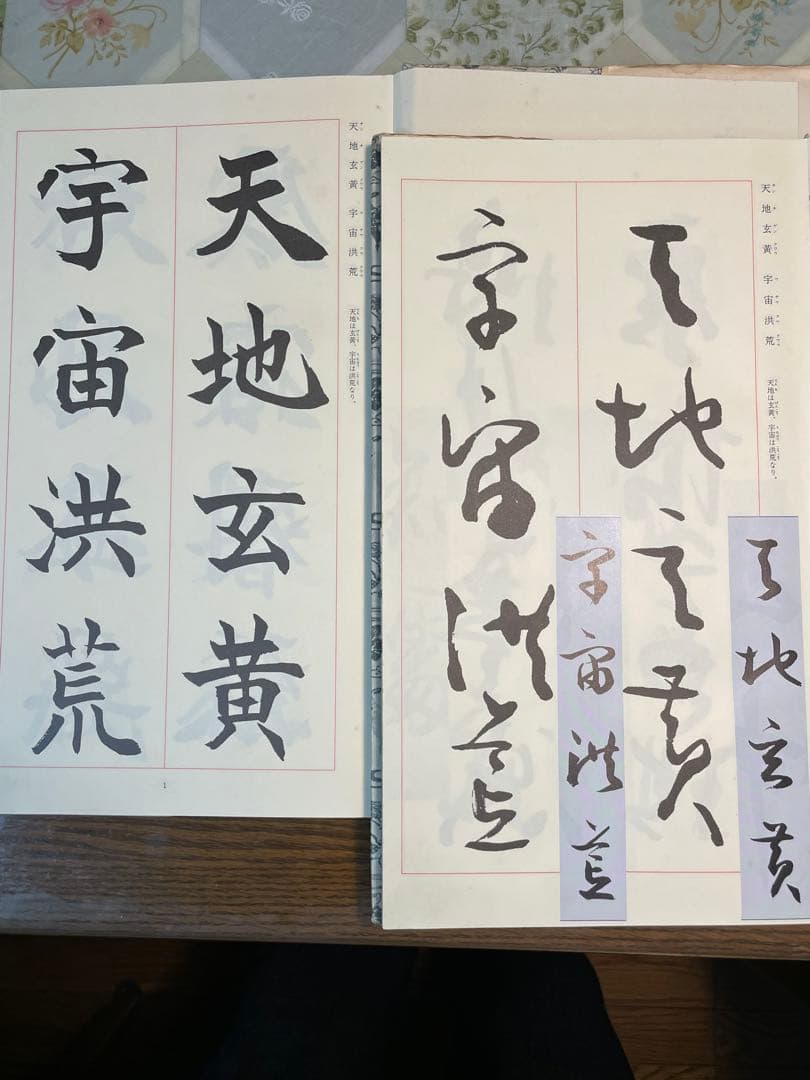 天地玄黄　宇宙洪荒
天地は玄黄、宇宙は洪荒なり。
天地玄黄
宇宙洪荒
1
天地玄黄　宇宙洪荒
天地は玄黄、宇宙は洪荒なり。
天地玄黄
宇宙洪荒
天地玄黄
宇宙洪荒